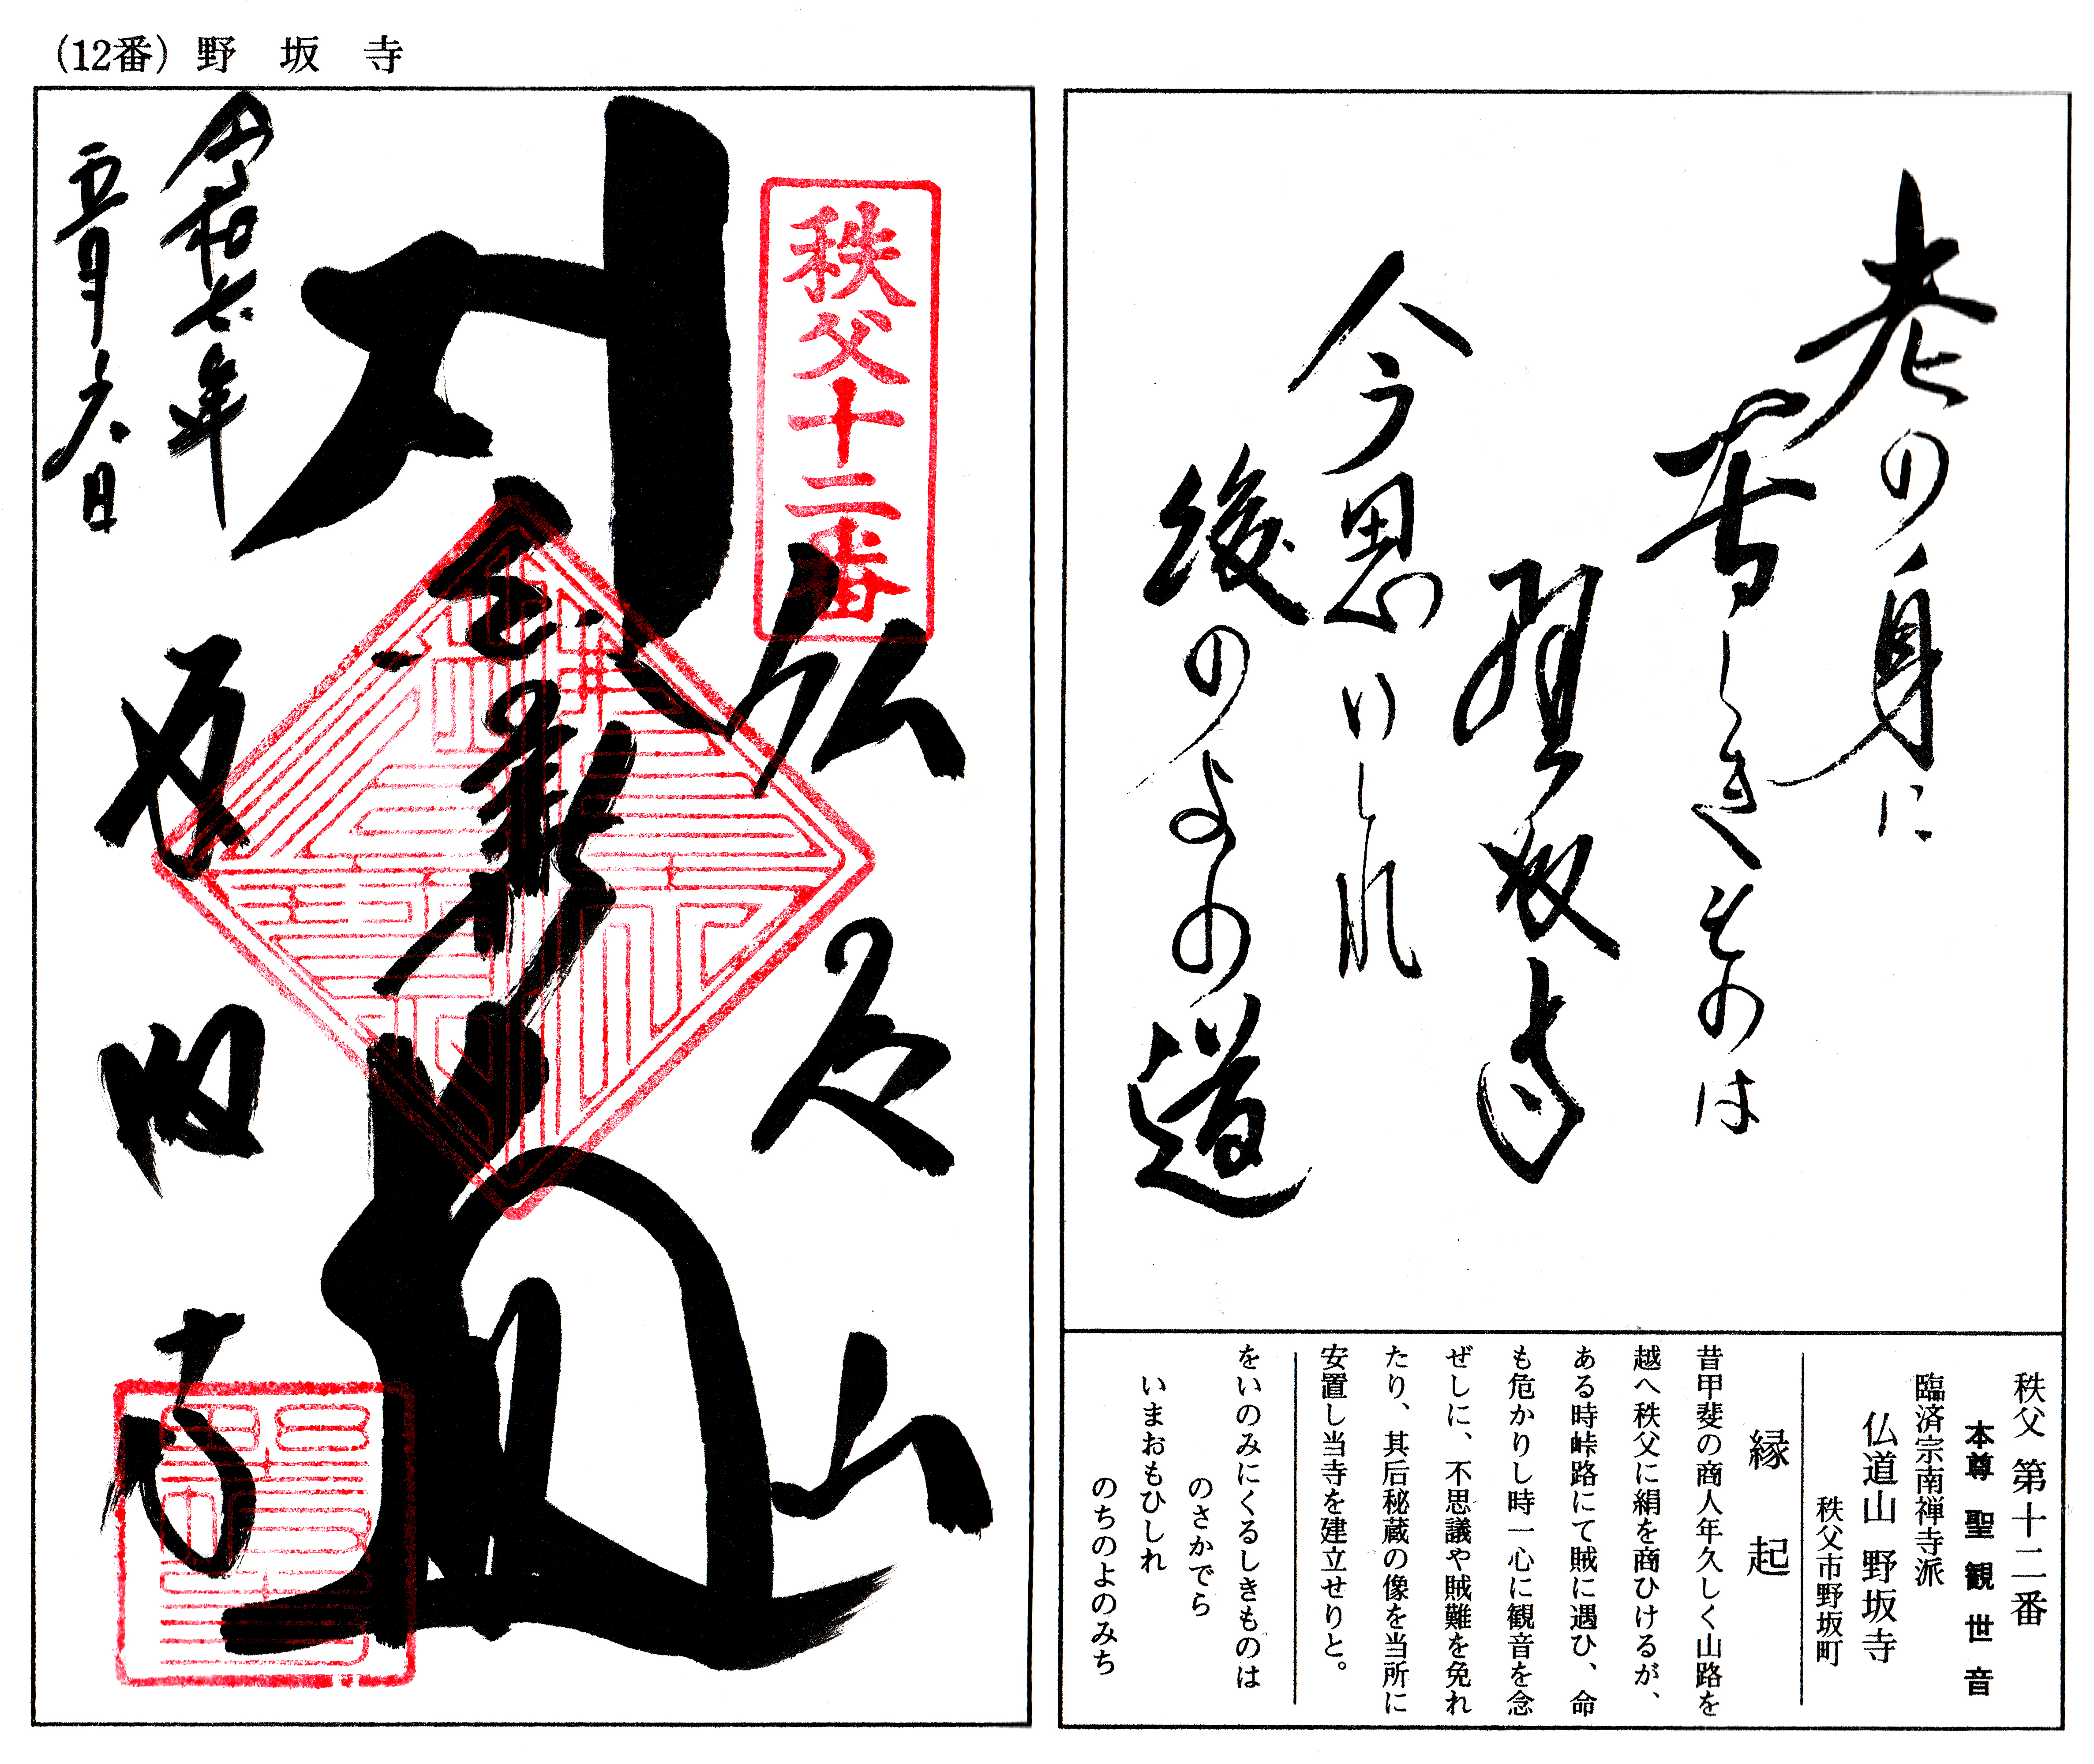 (12番) 野坂寺
秩父十二番
仏道山
野坂寺
令和六年
五月六日
老の身に
苦しきものは
野坂寺
今思いしれ
後のよの道
秩父 第十二番
本尊 聖観世音
臨済宗南禅寺派
仏道山 野坂寺
秩父市野坂町
縁起
昔甲斐の商人年久しく山路を
越へ秩父に絹を商ひけるが、
ある時峠路にて賊に遇ひ、命
も危かりし時一心に観音を念
ぜしに、不思議や賊難を免れ
たり、其后秘蔵の像を当所に
安置し当寺を建立せりと。
をいのみにくるしきものは
のさかでら
いまおもひしれ
のちのよのみち